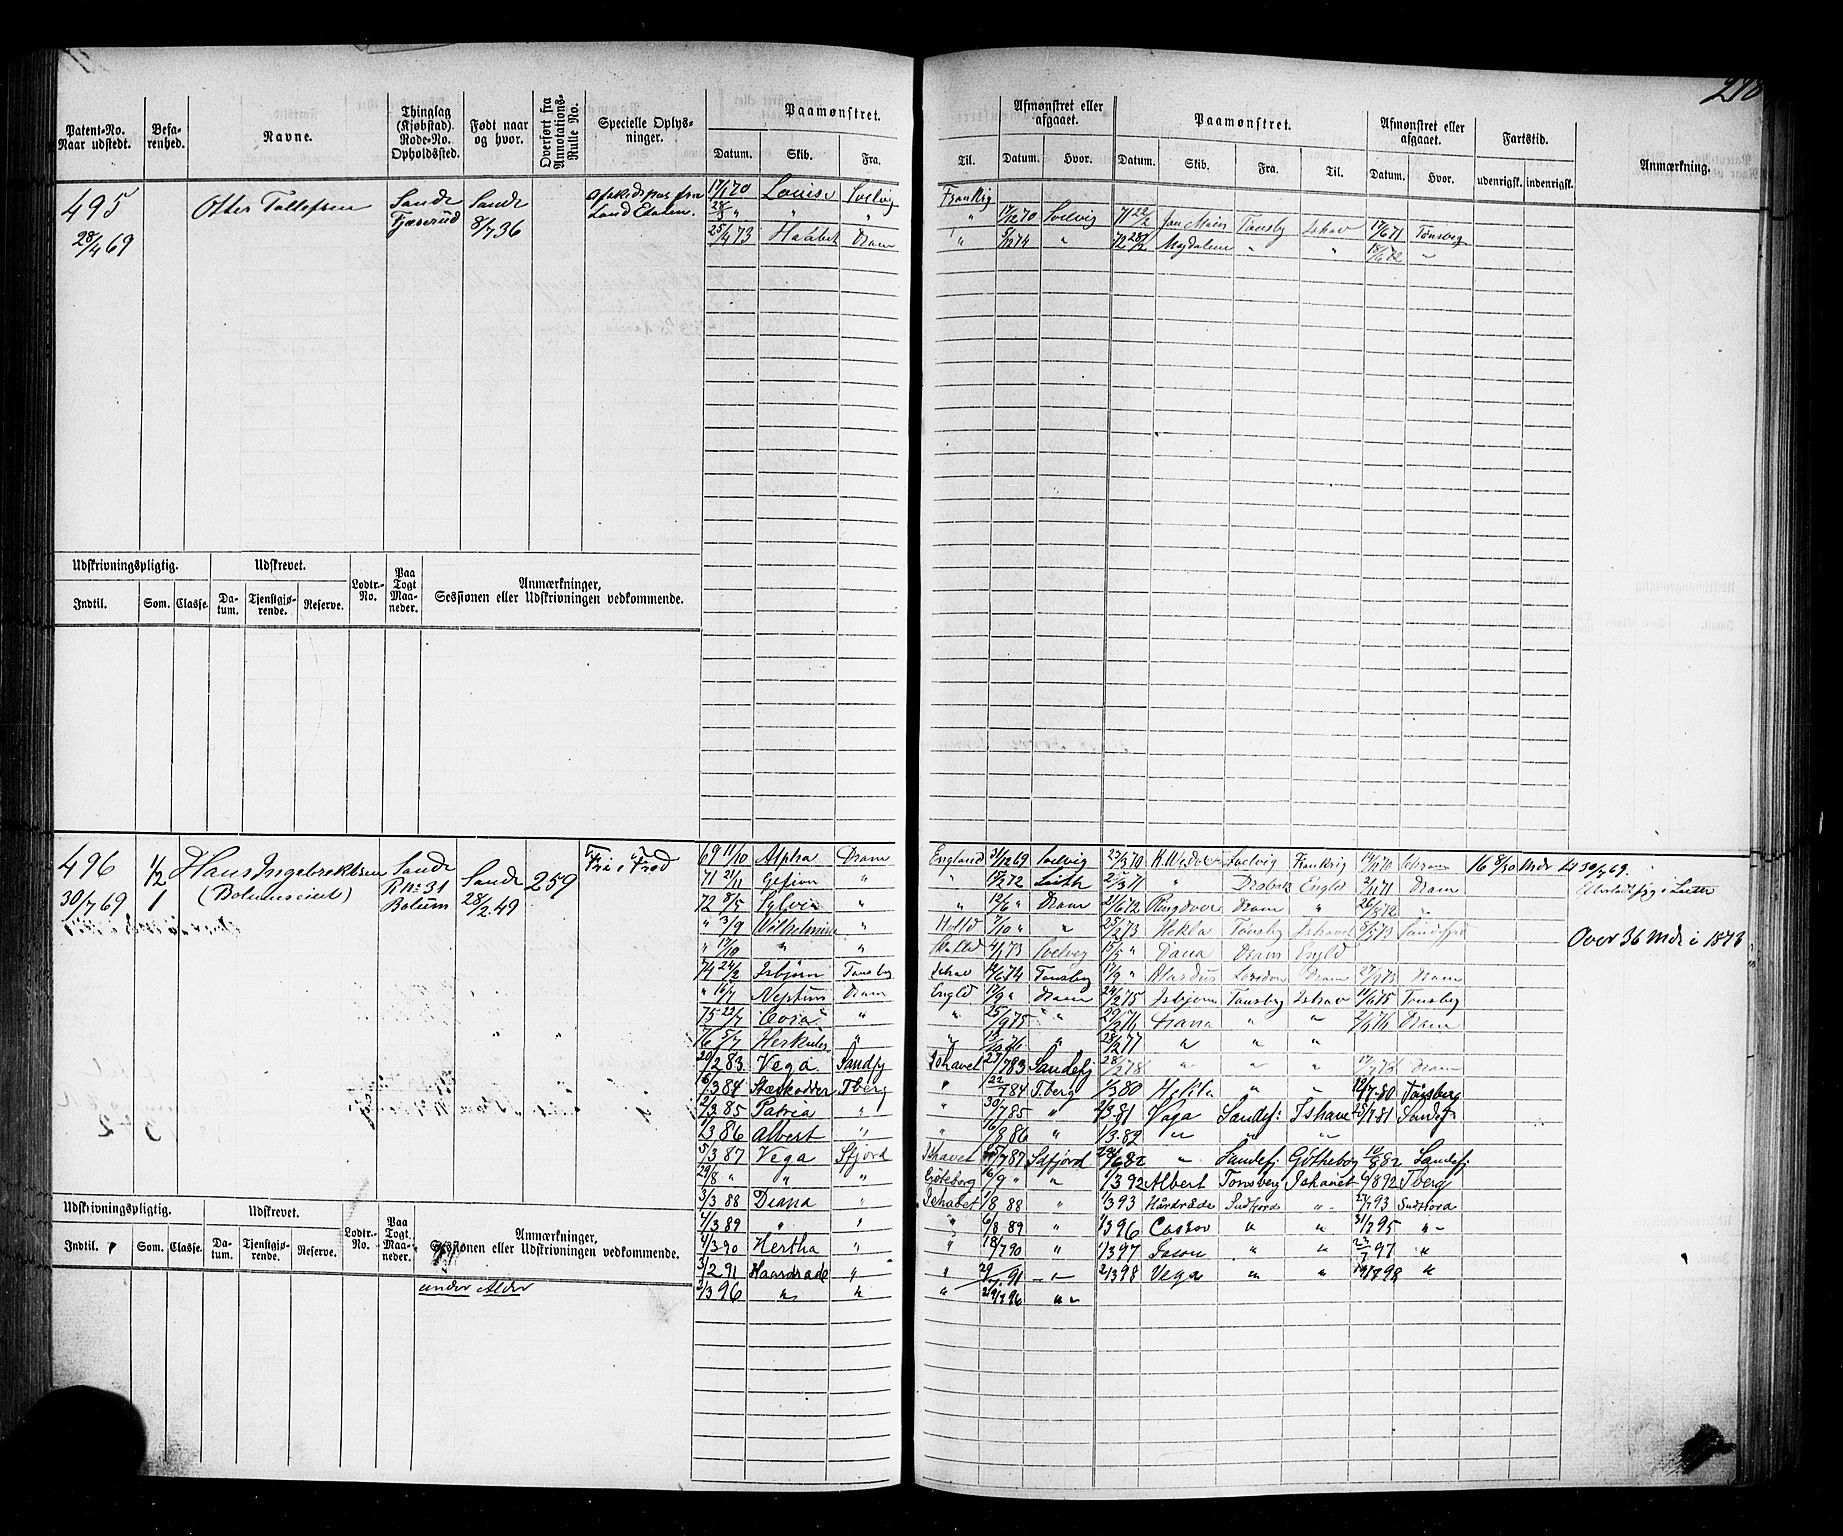 218
Patent-No. Naar udstedt.
Befarenhed.
Navne.
Thinglag (Kjøbstad). Rode-No. Opholdssted.
Født naar og hvor.
Overført fra Annotations-Rulle No.
Specielle Oplysninger.
Paamønstret.
Datum. Skib. Fra. Til.
Afmønstret eller afgaaet.
Datum. Hvor.
Paamønstret.
Datum. Skib. Fra. Til.
Afmønstret eller afgaaet.
Datum. Hvor.
Fartstid.
udenrigsk. indenrigsk.
Anmærkning.
495
28/4 69
Otter Tollefsen
Sande
Fjæserud
Sande
8/7 36
Afskedspas fra
Land Etaten.
17/1 70 Louise Solvig Frankrig
28/3 " " " " 17/12 70 Solvig 71 22/2 Jan Maien Tønsby Ishav 17/6 71 Tønsberg
25/4 73 Haabet Dram " 5/12 74 " 72 28/2 Magdalene " " 18/6 72 "
Udskrivningspligtig.
Udskrevet.
Lodtr.-No.
Paa Togt Maaneder.
Anmærkninger,
Sessionen eller Udskrivningen vedkommende.
Indtil. Som. Classe. Datum. Tjenstgjørende. Reserve.
496
30/7 69
1/2
1
Hans Ingebrektsen
(Bolumseiet)
Sande
R No 31
Bolum
Sande
28/2 49
259
69 11/10 Alpha Dram England 31/12 69 Solvig 23/3 70 Solvig Frankrig 70 Dram
71 21/11 Gefion " " 72 Leith 71 " Engld 71 Dram
72 8/5 Sylvia " " 12/6 " Dram 21/6 72 Ringdove Dram " 26/8 72 "
" 3/9 Wilhelmine " Holld 7/10 " " 25/2 73 Hekla Tønsby Ishavet 5/5 73 Sandefj
" 17/10 " " 4/1 73 Solvig 15/5 " Dana Dram Engld
74 24/2 Isbjørn Tønsby Ishav 12/6 74 Tønsby 17/9 " London Dram 75 Dram
" 16/7 Neptun Dram Engld 17/9 " Dram 24/2 75 Isbjørn Tønsby Ishav 11/6 75 Tønsberg
75 22/7 Cora " " 25/9 75 " " 29/2 76 Diana " " 76 Dram
76 5/7 Herkules " " 76 " 28/2 77 " " "
20/2 83 Vega Sandfj Ishavet 23/7 83 Sandefj 28/2 78 " " " 78 Dram
15/3 84 Stærkodder Tberg " 22/7 84 T.berg 1/3 80 " " 12/7 80 Tønsberg
2/3 85 Patria " 30/7 85 " 2/3 81 Vega Sandefj: Ishavet 25/7 81 Sandefj
1/3 86 Albert " 16/8 86 " 1/3 82 " " "
5/3 87 Vega Sfjord Ishavet 7 87 Safjord 24/6 82 " Sandefj Gøtheborg 10/8 82 Sandefj
29/8 " " " Gøteborg 16/9 " " 1/3 92 Albert Tønsberg Ishavet 6/8 92 Tberg
3/3 88 Diana " Ishavet 1/8 88 " 1/3 93 Hårdråde Sndfjord " 24/7 93 Sndfjord
4/3 89 " " " 6/8 89 " 1/3 96 Castor " " 31/7 95 "
4/3 90 Hertha " " 18/7 90 " 1/3 97 Jason " " 23/7 97 "
3/2 91 Haardraade " " 29/7 91 " 2/3 98 Vega " " 19/8 98 "
2/3 96 " " " 29/7 96 "
16 8/30 Mdr
til 30/7 69.
Over 36 Mdr i 1873
Udskrivningspligtig.
Udskrevet.
Lodtr.-No.
Paa Togt Maaneder.
Anmærkninger,
Sessionen eller Udskrivningen vedkommende.
Indtil. Som. Classe. Datum. Tjenstgjørende. Reserve.
under Alder